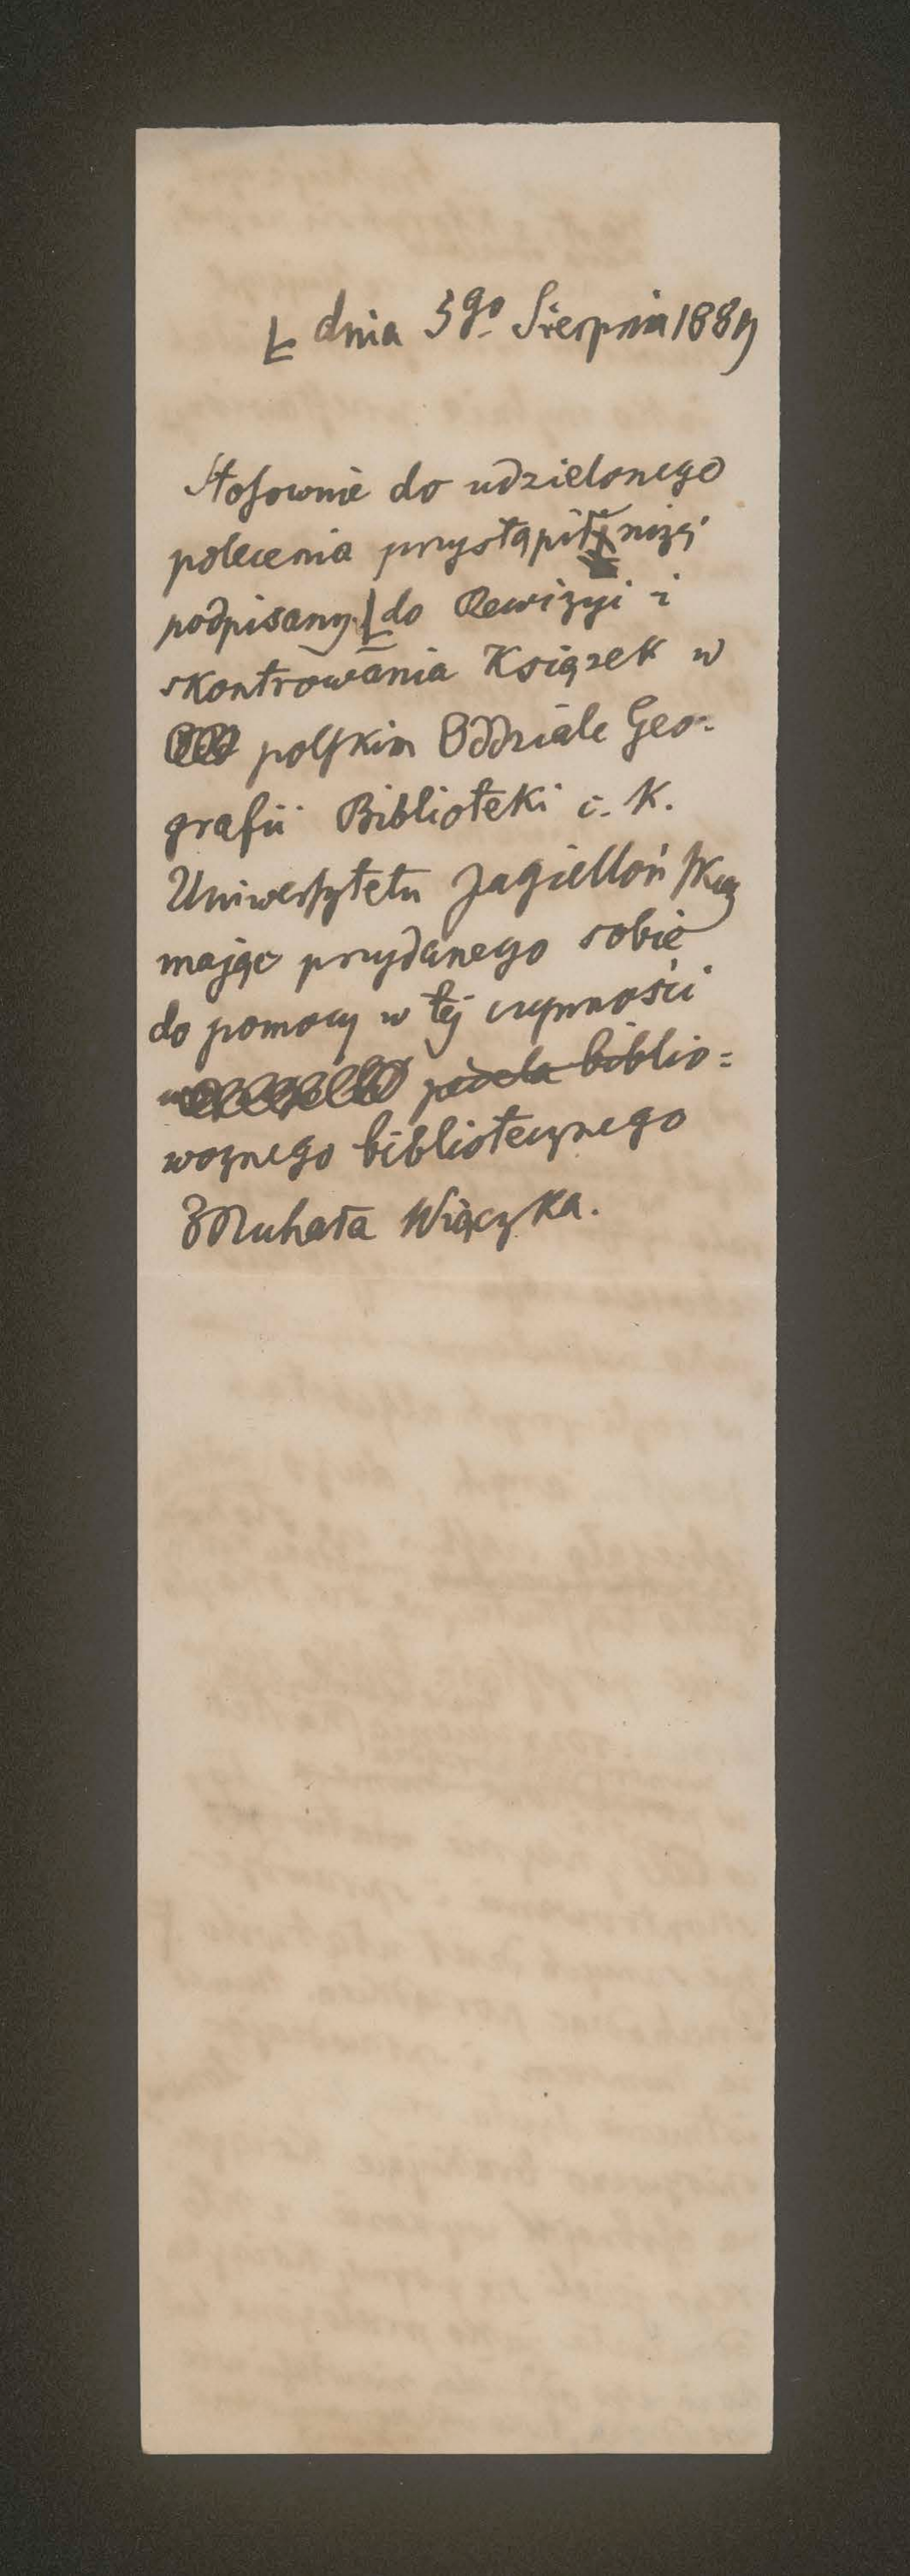 Ł dnia 3go Sierpnia 1889
Stosownie do udzielonego
polecenia przystąpił niżéj
podpisany do Rewizyi i
skontrowania Książek w
polskim Oddziale Geo-
grafii Biblioteki c. K.
Uniwersytetu Jagiellońskieg
mając przydanego sobie
do pomocy w téj czynności
biblio=
woznego bibliotecznego
Michała Wiączka.